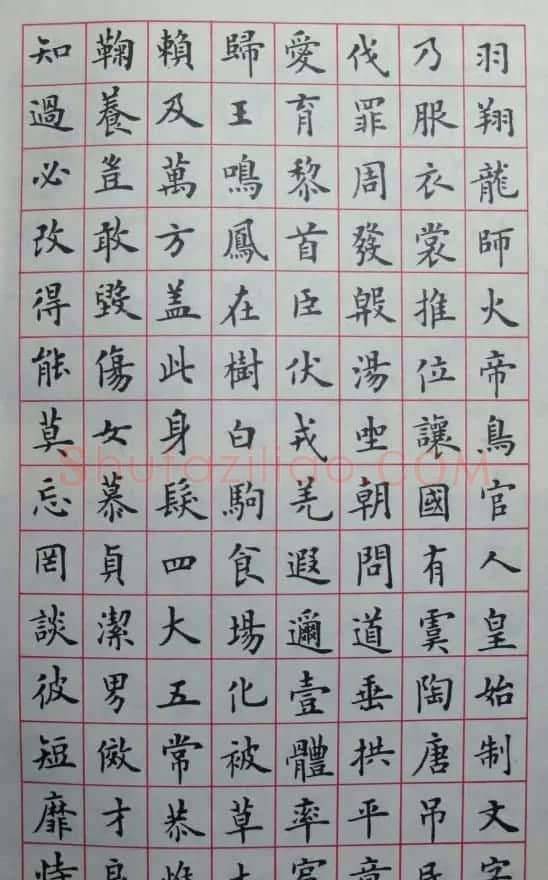 羽翔龍師火帝鳥官人皇始制文字
乃服衣裳推位讓國有虞陶唐吊民
伐罪周發殷湯坐朝問道垂拱平章
愛育黎首臣伏戎羌遐邇壹體率賓
歸王鳴鳳在樹白駒食場化被草木
賴及萬方盖此身髮四大五常恭惟
鞠養豈敢毀傷女慕貞潔男俲才良
知過必改得能莫忘罔談彼短靡恃
Shufaziliao.COM